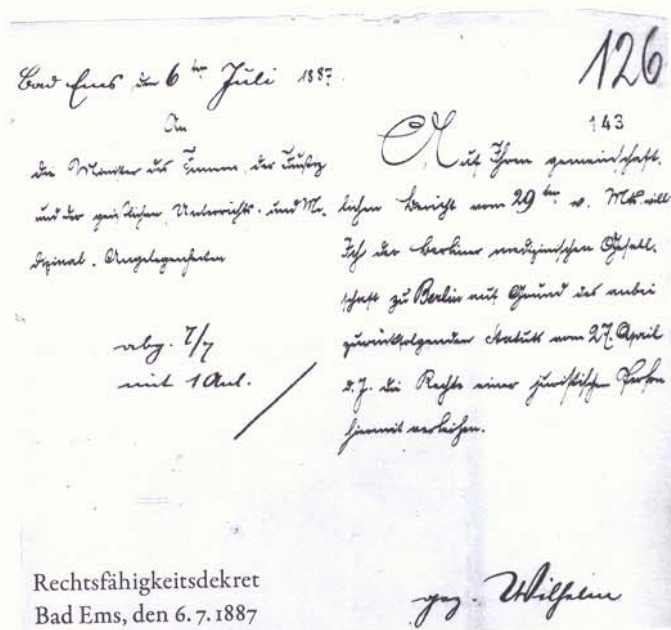 126
143
Bad Ems, den 6ten Juli 1887.
An
die Minister des Innern, der Justiz
und der geistlichen, Unterrichts- und Me-
dizinal-Angelegenheiten
abg. 7/7
mit 1 Anl.
Auf Ihren gemeinschaft-
lichen Bericht vom 29ten v. Mts. will
Ich der Berliner medizinischen Gesell-
schaft zu Berlin auf Grund des anbei
zurückfolgenden Statuts vom 27. April
d. J. die Rechte einer juristischen Person
hiermit verleihen.
gez. Wilhelm
Rechtsfähigkeitsdekret
Bad Ems, den 6.7.1887